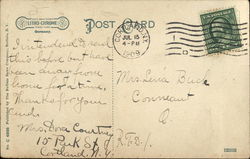 LITHO-CHROME
Germany.
POST CARD
JUL 15
4-PM
1909
I intended to send
this before but have
been away from
home for a time.
Thanks for your
card.
Mrs. Dora Courtney
15 Park St
Cortland, N.Y.
Mrs. Lena Buck
Conneaut
O.
R.F.D. 1.